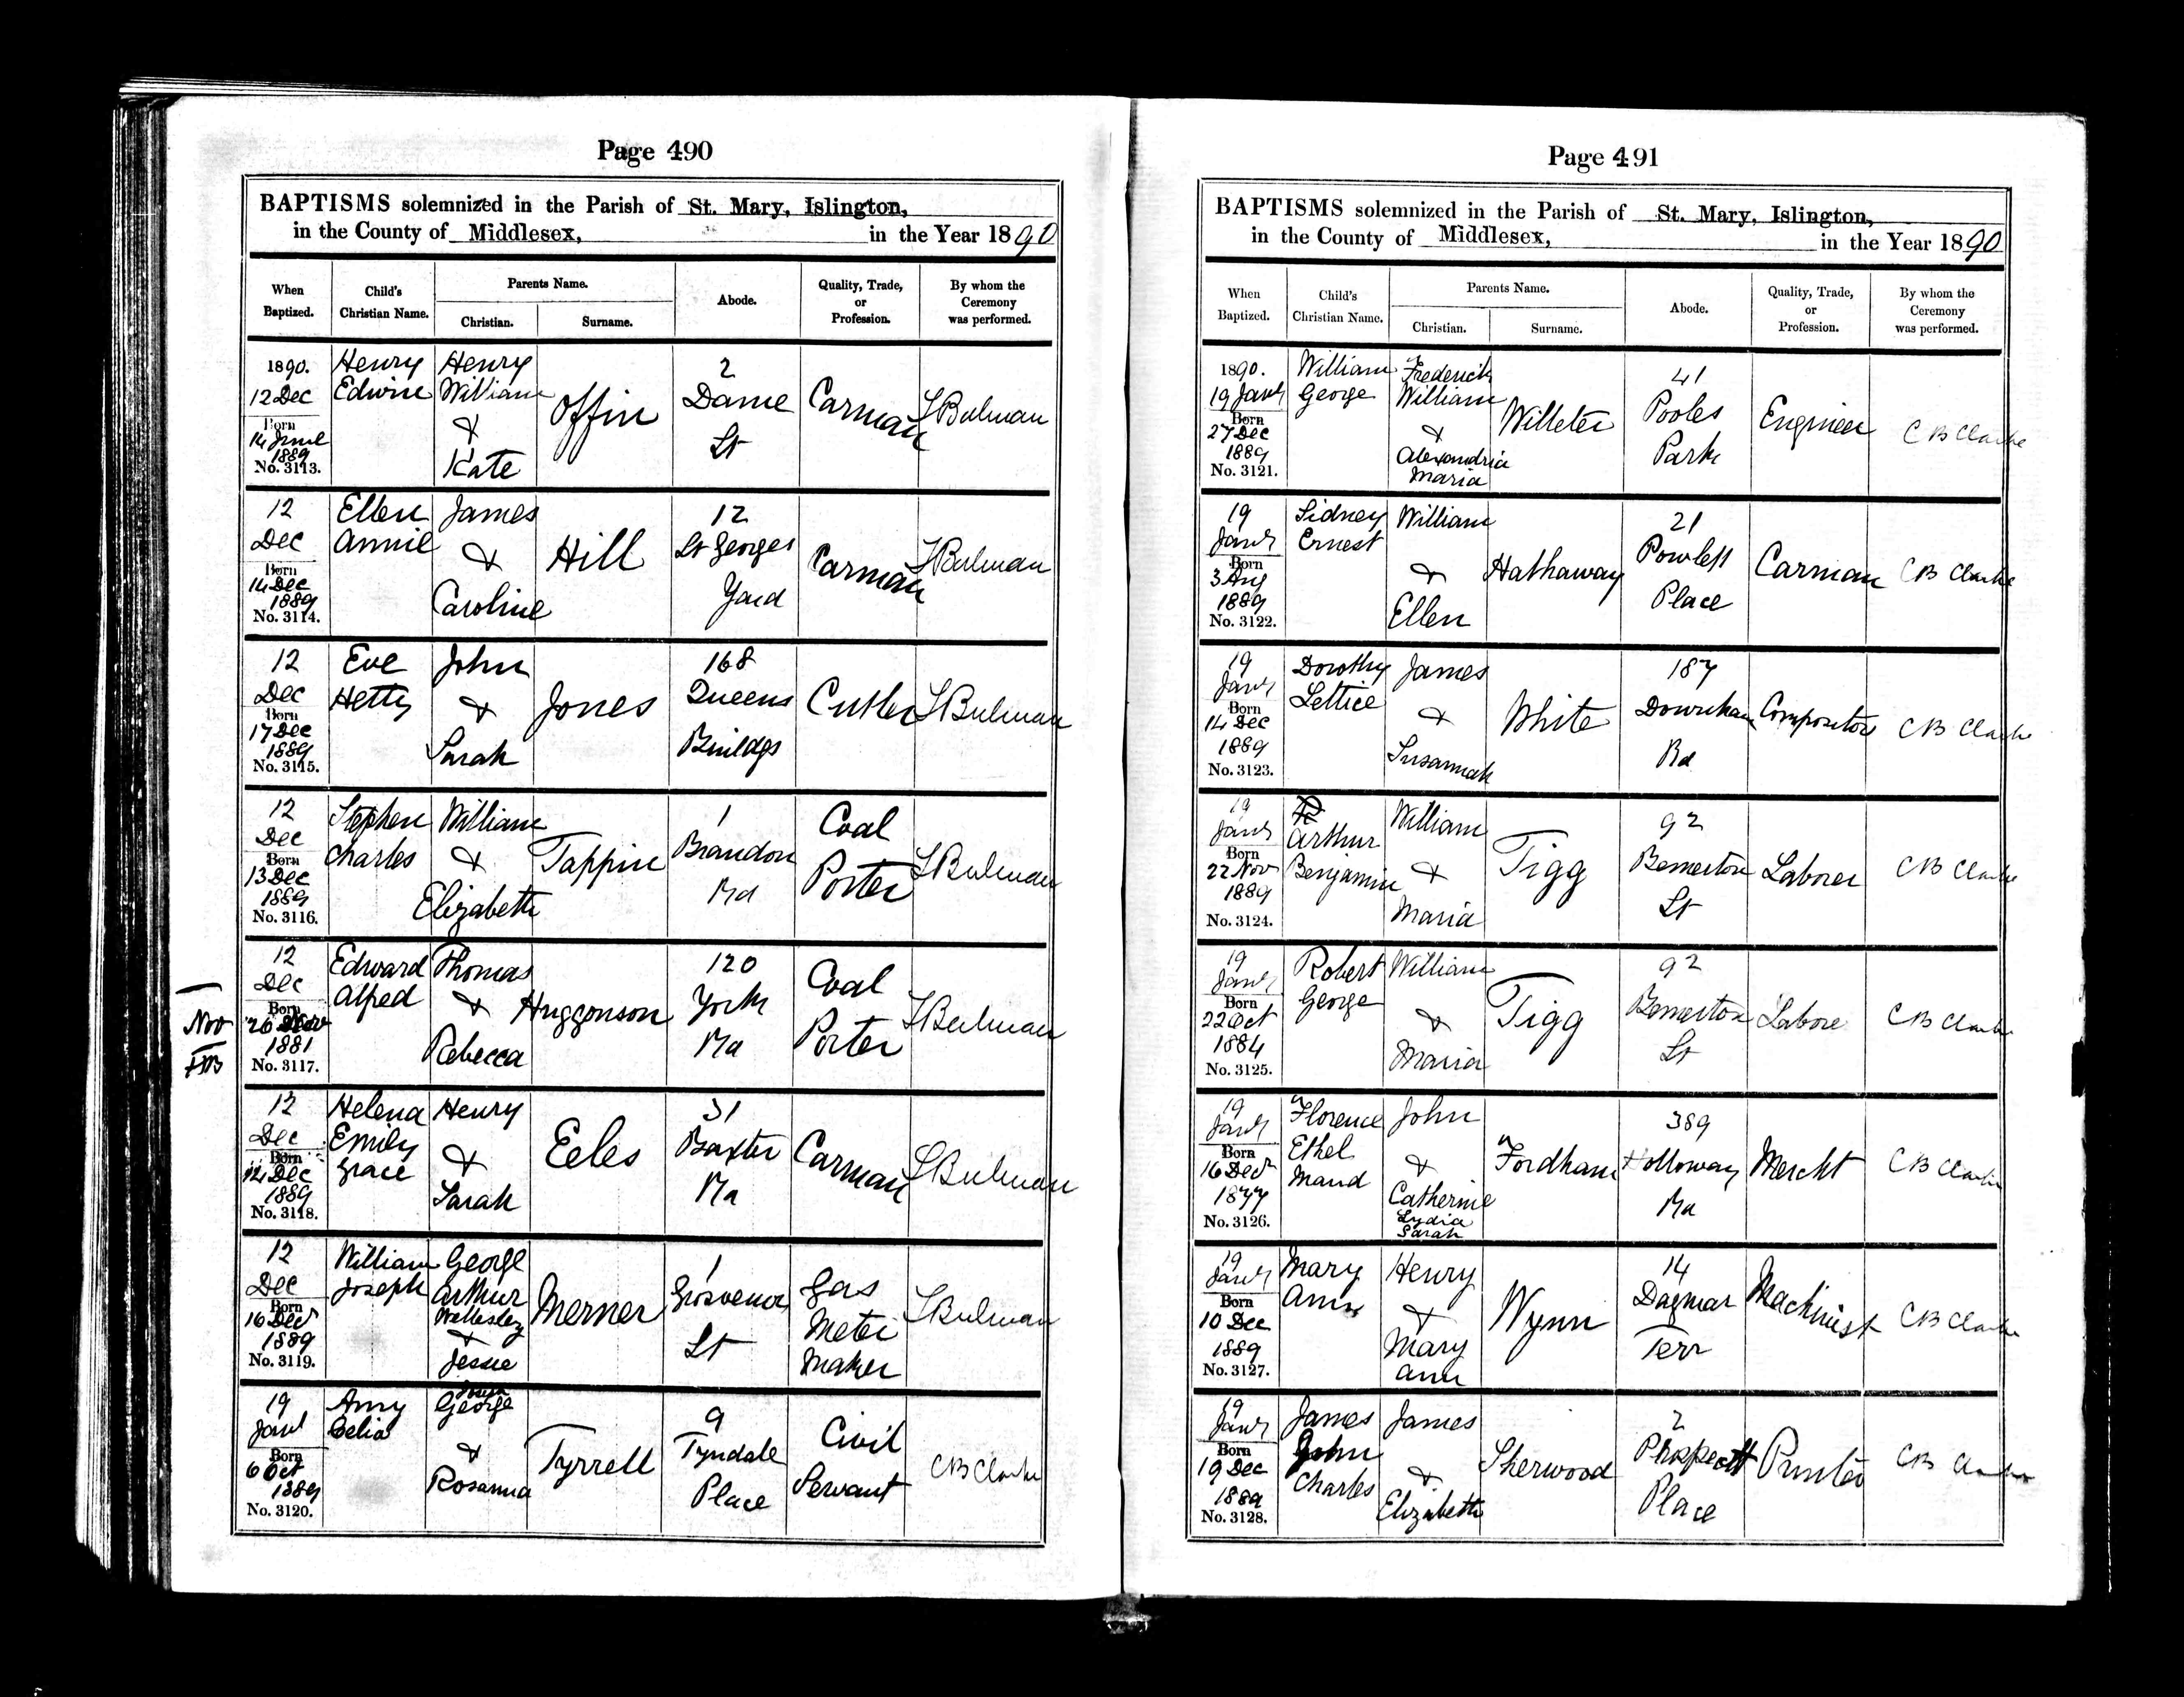 Page 490
BAPTISMS solemnized in the Parish of St. Mary, Islington,
in the County of Middlesex, in the Year 1890
When Baptized. Child's Christian Name. Parents Name. Christian. Surname. Abode. Quality, Trade, or Profession. By whom the Ceremony was performed.
1890. 12 Dec Born 14 June 1889 No. 3113. Henry Edwin Henry William & Kate Offin 2 Dame St Carman Bulman
12 Dec Born 14 Dec 1889 No. 3114. Ellen Annie James & Caroline Hill 12 St Georges Yard Carman Bulman
12 Dec Born 17 Dec 1889 No. 3115. Eve Hetty John & Sarah Jones 168 Queens Buildgs Cutler Bulman
12 Dec Born 13 Dec 1889 No. 3116. Stephen Charles William & Elizabeth Tappin 1 Brandon Rd Coal Porter Bulman
Nov
12 Dec Born 26 1881 No. 3117. Edward Alfred Thomas & Rebecca Huggonson 120 York Rd Coal Porter Bulman
12 Dec Born 14 Dec 1889 No. 3118. Helena Emily Grace Henry & Sarah Eeles 31 Baxter Rd Carman Bulman
12 Dec Born 16 Dec 1889 No. 3119. William Joseph George Arthur Wellesley & Jessie Merner 1 Grosvenor St Gas Meter Maker Bulman
19 Jany Born 6 Oct 1889 No. 3120. Amy Celia George & Rosanna Tyrrell 9 Tyndale Place Civil Servant C B Clarke
Page 491
BAPTISMS solemnized in the Parish of St. Mary, Islington,
in the County of Middlesex, in the Year 1890
When Baptized. Child's Christian Name. Parents Name. Christian. Surname. Abode. Quality, Trade, or Profession. By whom the Ceremony was performed.
1890. 19 Jany Born 27 Dec 1889 No. 3121. William George Frederick William & Alexandria Maria Willeter 41 Pooles Park Engineer C B Clarke
19 Jany Born 3 Aug 1889 No. 3122. Sidney Ernest William & Ellen Hathaway 21 Powlett Place Carman C B Clarke
19 Jany Born 14 Dec 1889 No. 3123. Dorothy Lettice James & Susannah White 187 Downham Rd Compositor C B Clarke
19 Jany Born 22 Nov 1889 No. 3124. Arthur Benjamin William & Maria Tigg 92 Bemerton St Laborer C B Clarke
19 Jany Born 22 Oct 1884 No. 3125. Robert George William & Maria Tigg 92 Bemerton St Labore C B Clarke
19 Jany Born 16 Decr 1877 No. 3126. Florence Ethel Maud John & Catherine Lydia Sarah Fordham 389 Holloway Rd Mercht C B Clarke
19 Jany Born 10 Dec 1889 No. 3127. Mary Ann Henry & Mary Ann Wynn 14 Dagmar Terr Machinist C B Clarke
19 Jany Born 19 Dec 1889 No. 3128. James John Charles James & Elizabeth Sherwood 2 Prospect Place Printer C B Clarke